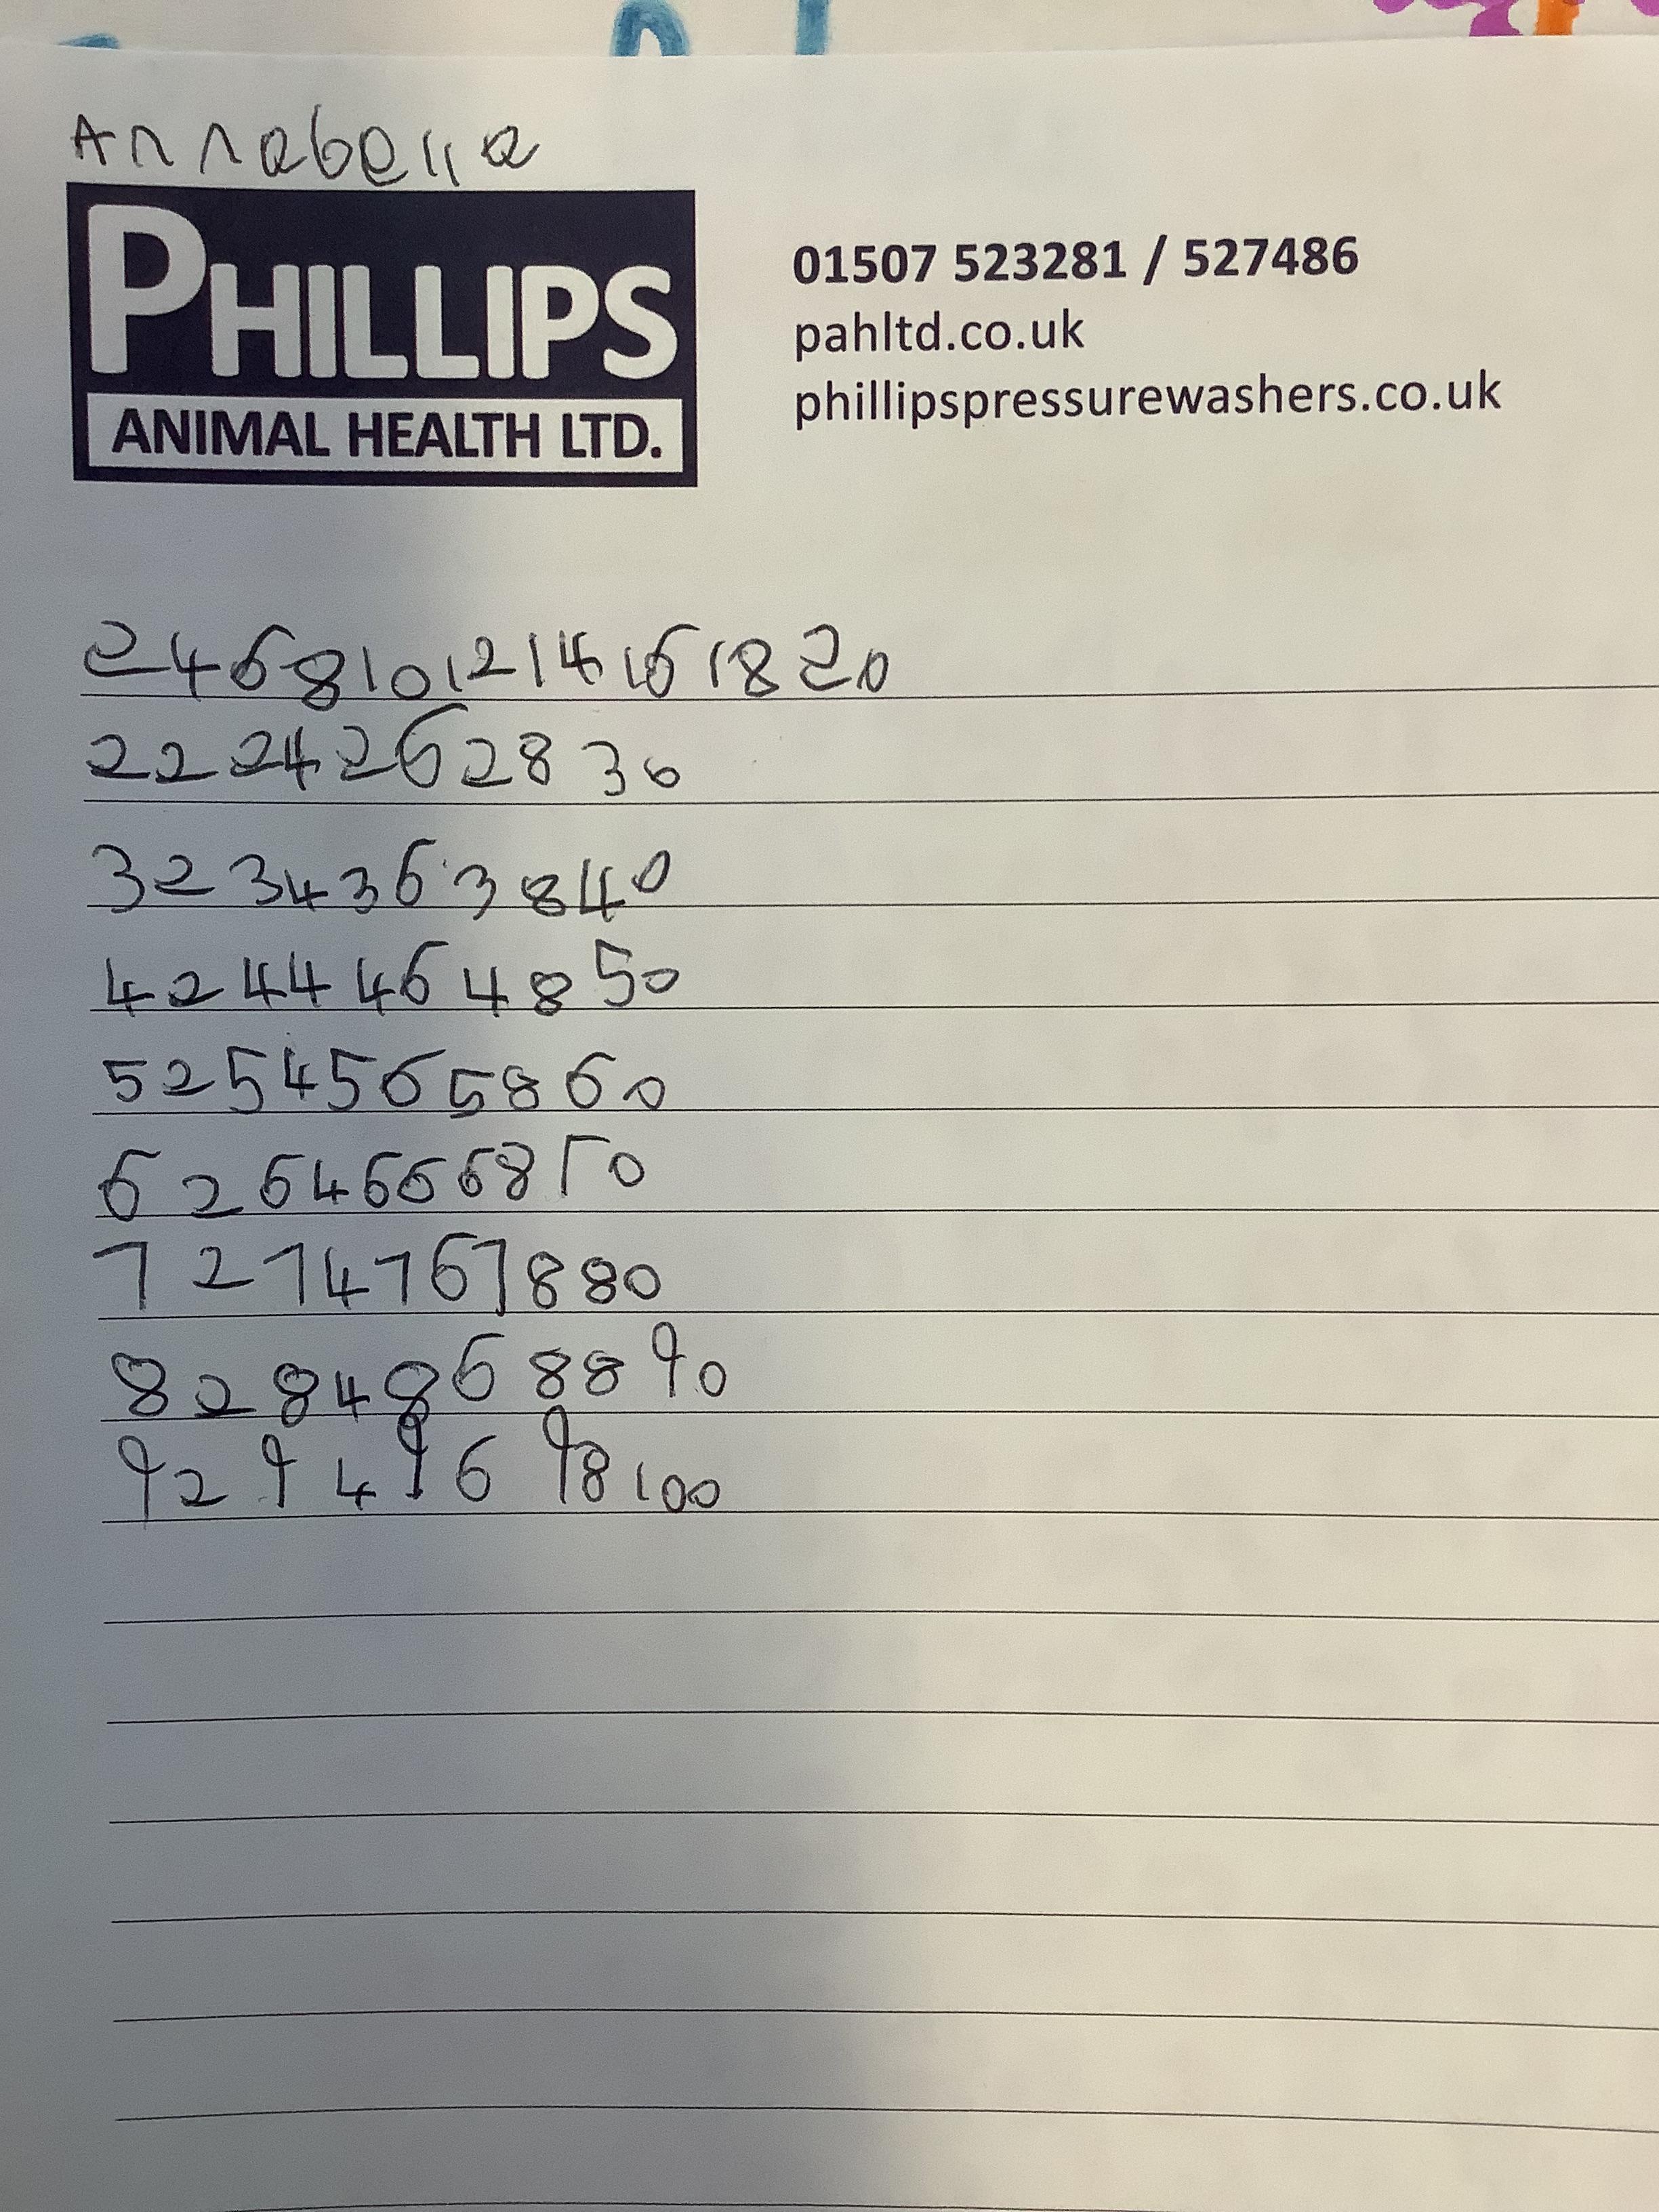 Annabella
PHILLIPS
ANIMAL HEALTH LTD.
01507 523281 / 527486
pahltd.co.uk
phillipspressurewashers.co.uk
2 4 6 8 10 12 14 16 18 20
22 24 26 28 30
32 34 36 38 40
42 44 46 48 50
52 54 56 58 60
62 64 66 68 70
72 74 76 78 80
82 84 86 88 90
92 94 96 98 100